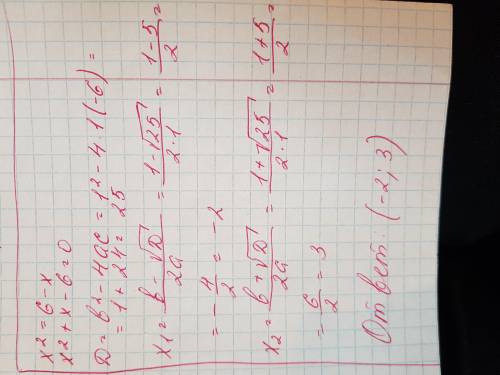 x² = 6 - x
x² + x - 6 = 0
D = b² - 4ac = 1² - 4·1(-6) =
= 1 + 24 = 25
x₁ = (b - √D)/2a = (1 - √25)/2·1 = (1 - 5)/2 =
= -4/2 = -2
x₂ = (b + √D)/2a = (1 + √25)/2·1 = (1 + 5)/2
= 6/2 = 3
Ответ: (-2; 3)